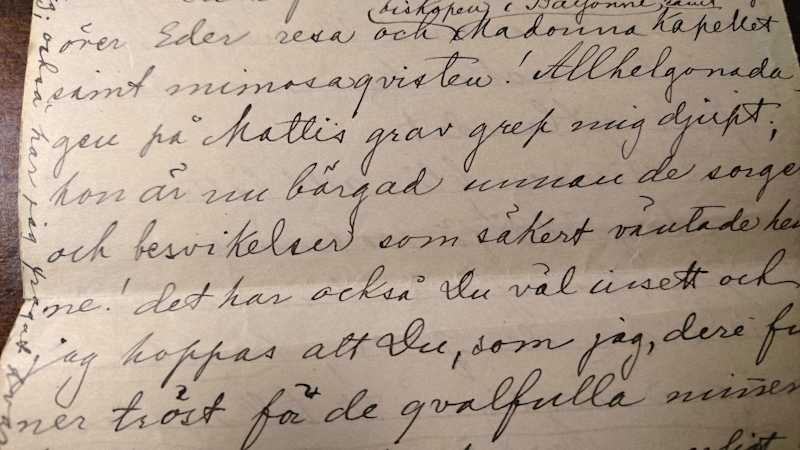 biskopen i Bayonne, samt
över Eder resa och Madonna Kapellet
samt mimosaqvisten! Allhelgonada
gen på Mattis grav grep mig djupt,
hon är nu bärgad unnan de sorge
och besvikelser som säkert väntade hen
ne! det har också Du väl insett och
jag hoppas att Du, som jag, deri fu
ner tröst för de qvalfulla minnen
också har jag